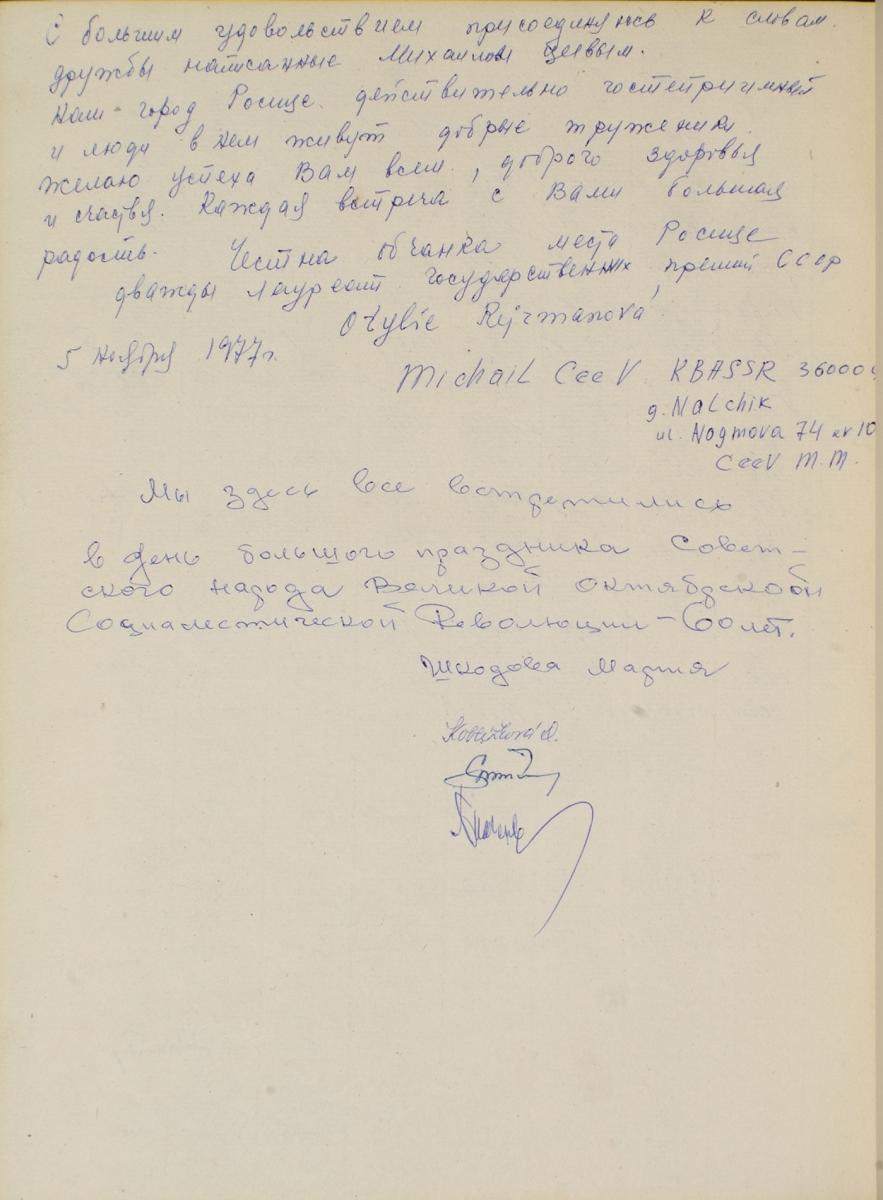 С большим удовольствием присоединяюсь к словам
дружбы написанные Михаилом Цеевым.
Наш город Росице действительно гостеприимный
и люди в нем живут добрые труженики.
желаю успеха Вам всем, доброго здоровья
и счастья. Каждая встреча с Вами большая
радость. Честна обчанка места Росице
дважды лауреат государственных премий СССР
Otylie Rejzmanová
5 ноября 1977 г.
Michail Ceev KBASSR 36000
g. Nalchik
ul. Nogmova 74 kv 10
Ceev M.M.
Мы здесь все встретились
в день большого праздника Совет-
ского народа Великой Октябрской
Социалистической Революции - 60 лет.
Шкодова Мария